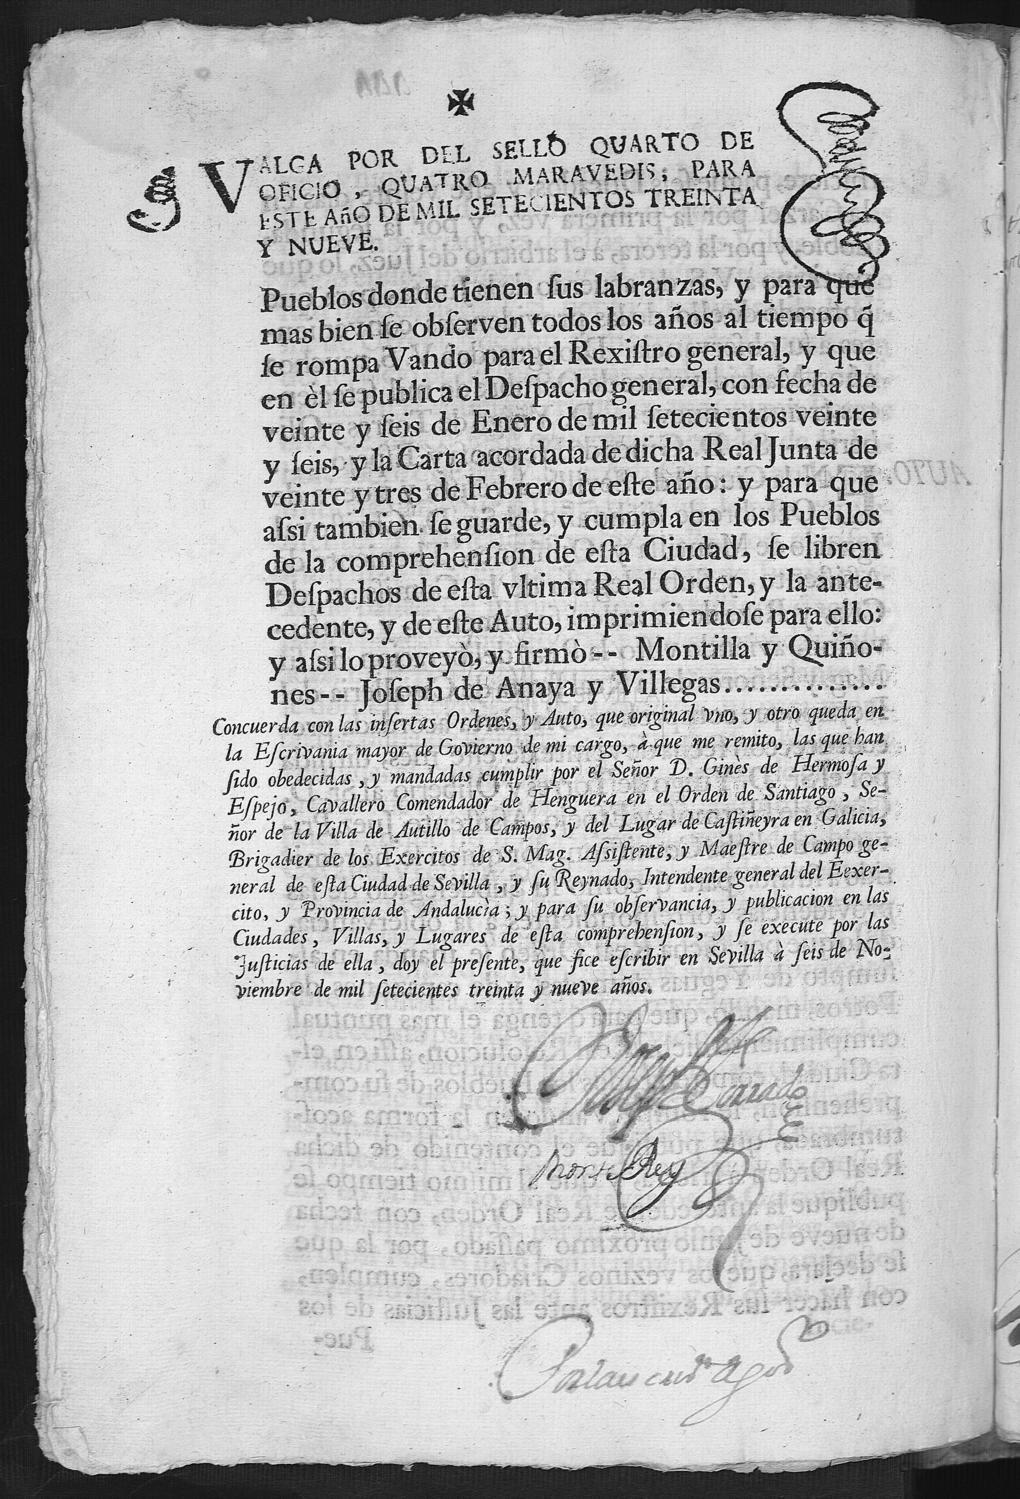 ✠
VALGA POR DEL SELLO QUARTO DE
OFICIO, QUATRO MARAVEDIS, PARA
ESTE AñO DE MIL SETECIENTOS TREINTA
Y NUEVE.
Pueblos donde tienen ſus labranzas, y para que
mas bien ſe obſerven todos los años al tiempo q̃
ſe rompa Vando para el Rexiſtro general, y que
en èl ſe publica el Deſpacho general, con fecha de
veinte y ſeis de Enero de mil ſetecientos veinte
y ſeis, y la Carta acordada de dicha Real Junta de
veinte y tres de Febrero de eſte año: y para que
aſsi tambien ſe guarde, y cumpla en los Pueblos
de la comprehenſion de eſta Ciudad, ſe libren
Deſpachos de eſta vltima Real Orden, y la ante-
cedente, y de eſte Auto, imprimiendoſe para ello:
y aſsi lo proveyò, y firmò -- Montilla y Quiño-
nes -- Joſeph de Anaya y Villegas..............
Concuerda con las inſertas Ordenes, y Auto, que original vno, y otro queda en
la Eſcrivania mayor de Govierno de mi cargo, à que me remito, las que han
ſido obedecidas, y mandadas cumplir por el Señor D. Ginès de Hermoſa y
Eſpejo, Cavallero Comendador de Henguera en el Orden de Santiago, Se-
ñor de la Villa de Autillo de Campos, y del Lugar de Caſtiñeyra en Galicia,
Brigadier de los Exercitos de S. Mag. Aſsiſtente, y Maeſtre de Campo ge-
neral de eſta Ciudad de Sevilla, y ſu Reynado, Intendente general del Eexer-
cito, y Provincia de Andalucìa; y para ſu obſervancia, y publicacion en las
Ciudades, Villas, y Lugares de eſta comprehenſion, y ſe execute por las
Juſticias de ella, doy el preſente, que fice eſcribir en Sevilla à ſeis de No-
viembre de mil ſetecientes treinta y nueve años.